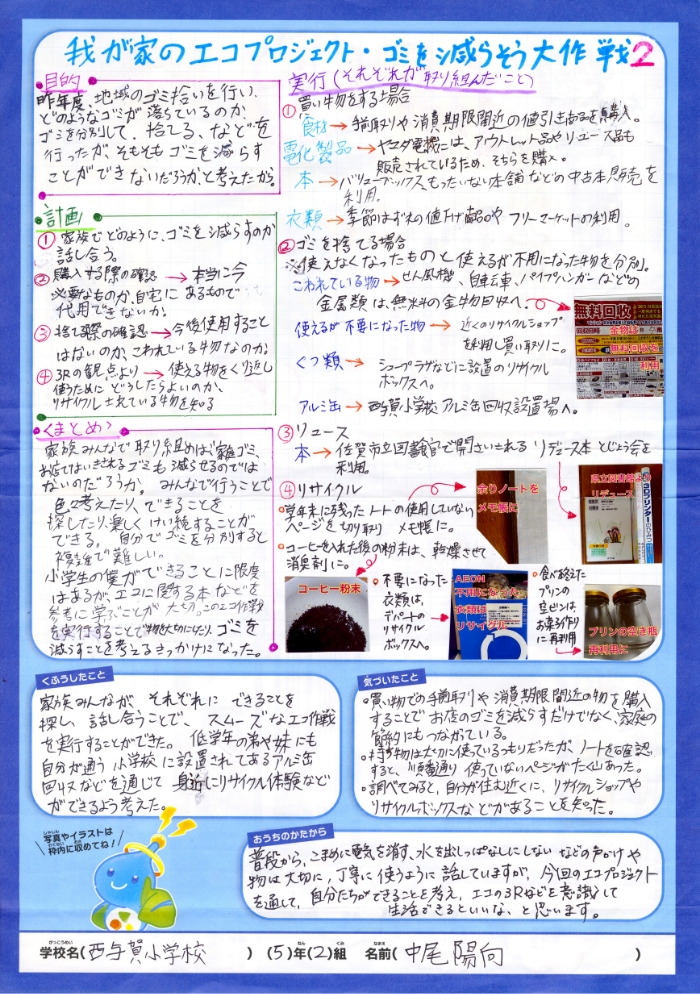 我が家のエコプロジェクト・ゴミを減らそう大作戦2
目的
昨年度、地域のゴミ拾いを行い、
どのようなゴミが落ちているのか
ゴミを分別して、捨てる、などを
行ったが、そもそもゴミを減らす
ことができないだろうかと考えたから。
計画
①家族でどのように、ゴミを減らすのか
話し合う。
②購入する際の確認→本当に今
必要なものか、自宅にあるもので
代用できないか。
③捨てる際の確認→今後使用すること
はないのか、こわれている物なのか。
④3Rの観点より→使える物をくり返し
使うために、どうしたらよいのか、
リサイクルされている物を知る
<まとめ>
家族みんなで取り組めば、雑ゴミ、
お店ではいきされるゴミも減らせるのでは
ないのだろうか。みんなで行うことで
色々考えたり、できることを
探したり、楽しくけい続することが
できる。自分でゴミを分別すると
複雑で難しい。
小学生の僕ができることに限度
はあるが、エコに関する本などを
参考に学ぶことが大切。このエコ作戦
を実行することで物を大切にしたり、ゴミを
減らすことを考えるきっかけになった。
実行(それぞれが取り組んだこと)
①買い物をする場合
食材→手前取りや消費期限間近の値引き商品を購入。
電化製品→ヤマダ電機には、アウトレット品やリユース品も
販売されているため、そちらを購入。
本→バリューブックス、もったいない本舗などの中古本販売を
利用。
衣類→季節はずれの値下げ品やフリーマーケットの利用。
②ゴミを捨てる場合
※使えなくなったものと使えるが不用になった物を分別。
こわれている物→せん風機、自転車、パイプハンガーなどの
金属類は、無料の金物回収へ。
無料回収
金物は
使えるが不要になった物→近くのリサイクルショップ
を利用し買い取りに。
くつ類→シュープラザなどに設置のリサイクル
ボックスへ。
アルミ缶→西与賀小学校アルミ缶回収設置場へ。
③リユース
本→佐賀市立図書館で開さいされるリデュース本とじょう会を
利用。
④リサイクル
学年末に残ったノートの使用していない
ページを切り取りメモ帳に。
余りノートを
メモ帳に
県立図書館より
リデュース
コーヒーを入れた後の粉末は、乾燥させて
消臭剤に。
コーヒー粉末
不要になった
衣類は、
デパートの
リサイクル
ボックスへ。
AEON
不用になった
衣類は
リサイクル
食べ終えた
プリンの
空ビンは、
お菓子作り
に再利用
プリンの空き瓶
再利用に
くふうしたこと
家族みんなが、それぞれにできることを
探し、話し合うことで、スムーズなエコ作戦
を実行することができた。低学年の弟や妹にも
自分が通う小学校に設置されてあるアルミ缶
回収などを通じて身近にリサイクル体験など
ができるよう考えた。
気づいたこと
買い物での手前取りや消費期限間近の物を購入
することでお店のゴミを減らすだけでなく、家庭の
節約にもつながている。
物は大切に使っているつもりだったが、ノートを確認
すると、順番通り使っていないページがたくさんあった。
調べてみると、自分が住む近くに、リサイクルショップや
リサイクルボックスなどがあることを知った。
写真やイラストは
枠内に収めてね!
おうちのかたから
普段から、こまめに電気を消す、水を出しっぱなしにしないなどの声かけや
物は大切に、丁寧に使うように話していますが、今回のエコプロジェクト
を通して、自分たちができることを考え、エコの3Rなどを意識して
生活できるといいな、と思います。
学校名(西与賀小学校)(5)年(2)組 名前(中尾 陽向)